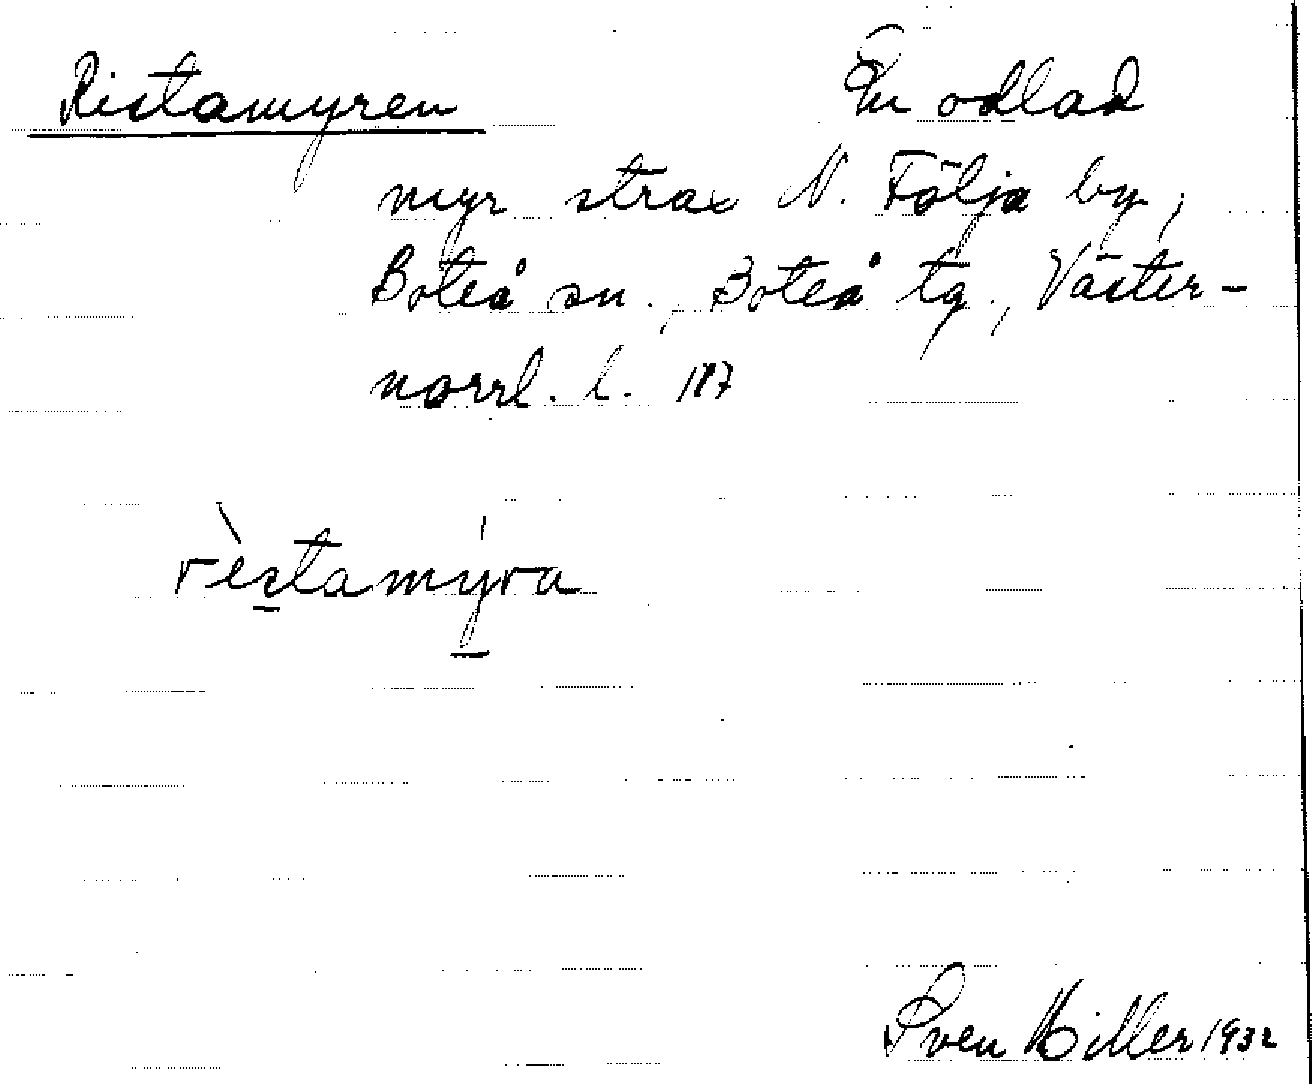 Ristamyren En odlad
myr strax N. Följa by,
Boteå sn., Boteå tg., Väster-
norrl. l. 187
rèstamýra
Sven Hiller 1932